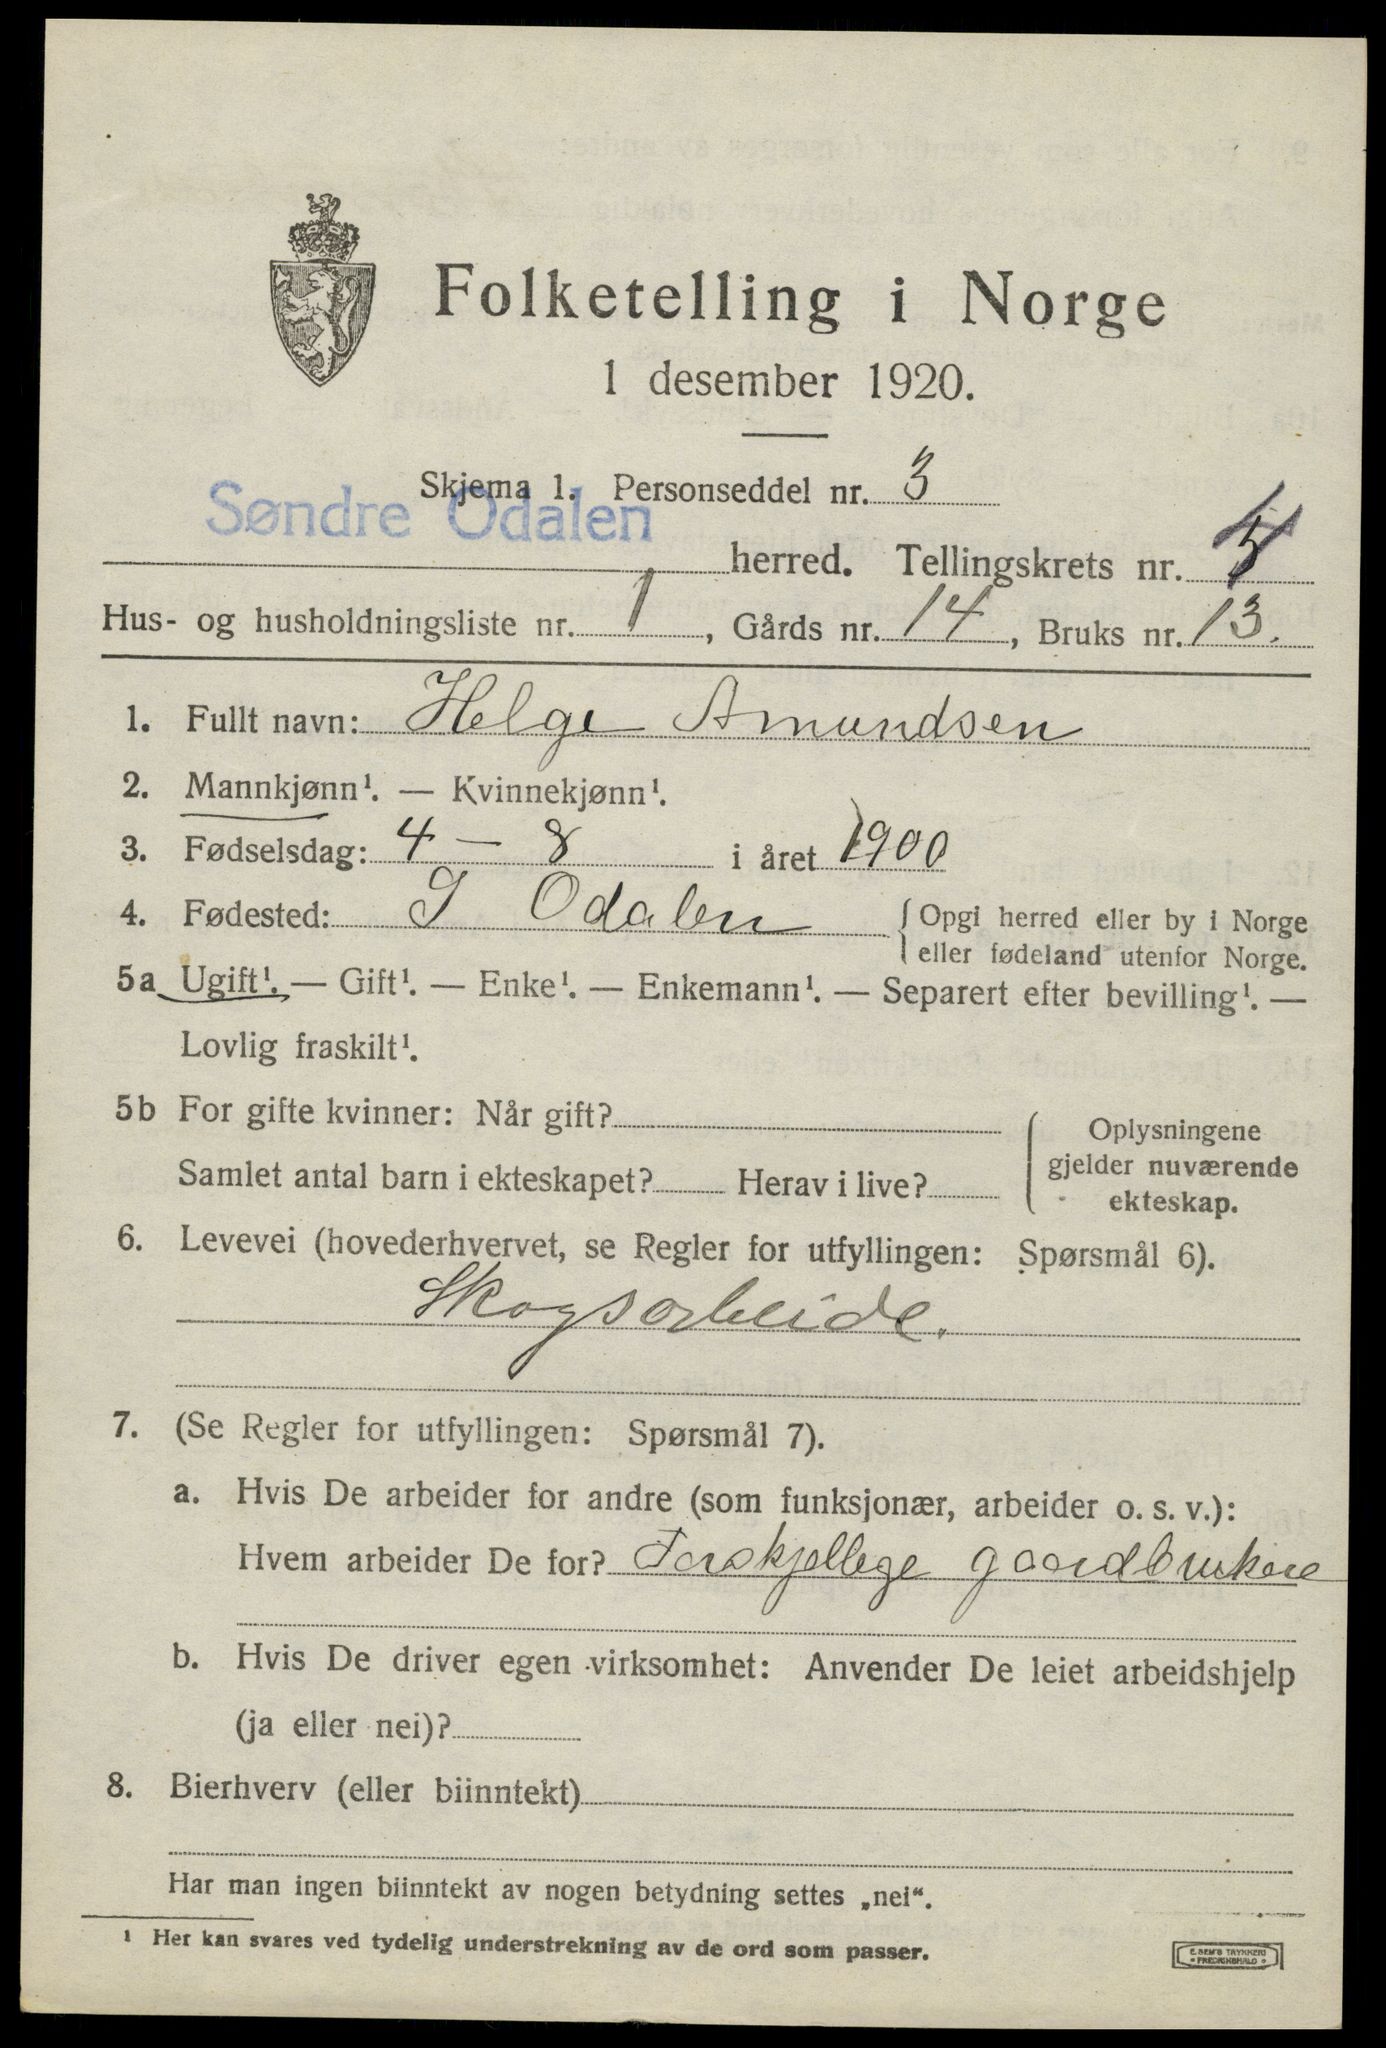 Folketelling i Norge
1 desember 1920.
Skjema 1. Personseddel nr. 3
Søndre Odalen herred. Tellingskrets nr.
Hus- og husholdningsliste nr. 1, Gårds nr. 14, Bruks nr. 13.
1. Fullt navn: Helge Amundsen
2. Mannkjønn¹. — Kvinnekjønn¹.
3. Fødselsdag: 4 — 8 i året 1900
4. Fødested: S Odalen {Opgi herred eller by i Norge
eller fødeland utenfor Norge.
5a Ugift¹. — Gift¹. — Enke¹. — Enkemann¹. — Separert efter bevilling¹. —
Lovlig fraskilt¹.
5b For gifte kvinner: Når gift?
Samlet antal barn i ekteskapet? Herav i live?
Oplysningene
gjelder nuværende
ekteskap.
6. Levevei (hovederhvervet, se Regler for utfyllingen: Spørsmål 6).
Skogsarbeide.
7. (Se Regler for utfyllingen: Spørsmål 7).
a. Hvis De arbeider for andre (som funksjonær, arbeider o. s. v.):
Hvem arbeider De for? Forskjellege gaardbrukere
b. Hvis De driver egen virksomhet: Anvender De leiet arbeidshjelp
(ja eller nei)?
8. Bierhverv (eller biinntekt)
Har man ingen biinntekt av nogen betydning settes „nei“.
¹ Her kan svares ved tydelig understrekning av de ord som passer.
E. SEM'S TRYKKERI
FREDRIKSHALD